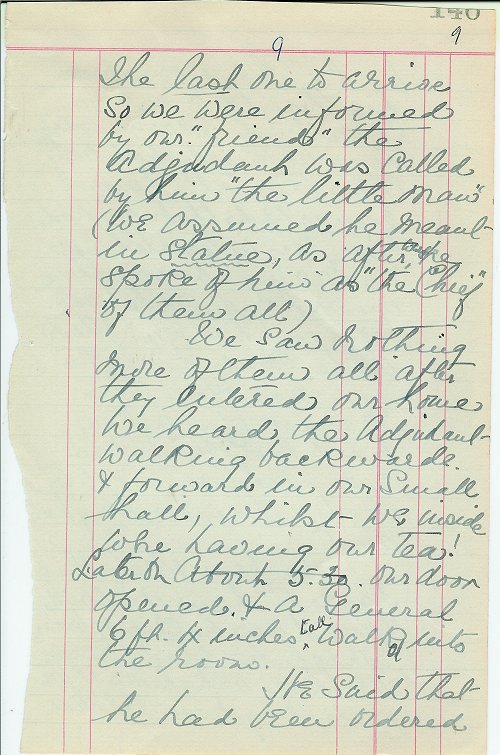 140
9
9
The last one to arrive
So we were informed
by our "friends" the
Adjudant was called
by him "the little man"
(We assumed he meant
in statue, as after he
spoke of him as "the Chief"
of them all)
We saw nothing
more of them all after
they entered our home
We heard the Adjudant
walking backwards
& forward in our small
hall, whilst we inside
were having our tea!
Later on About 5.30. our door
opened. & a General
6 ft. 4 inches tall walked into
the room.
He said that
he had been ordered